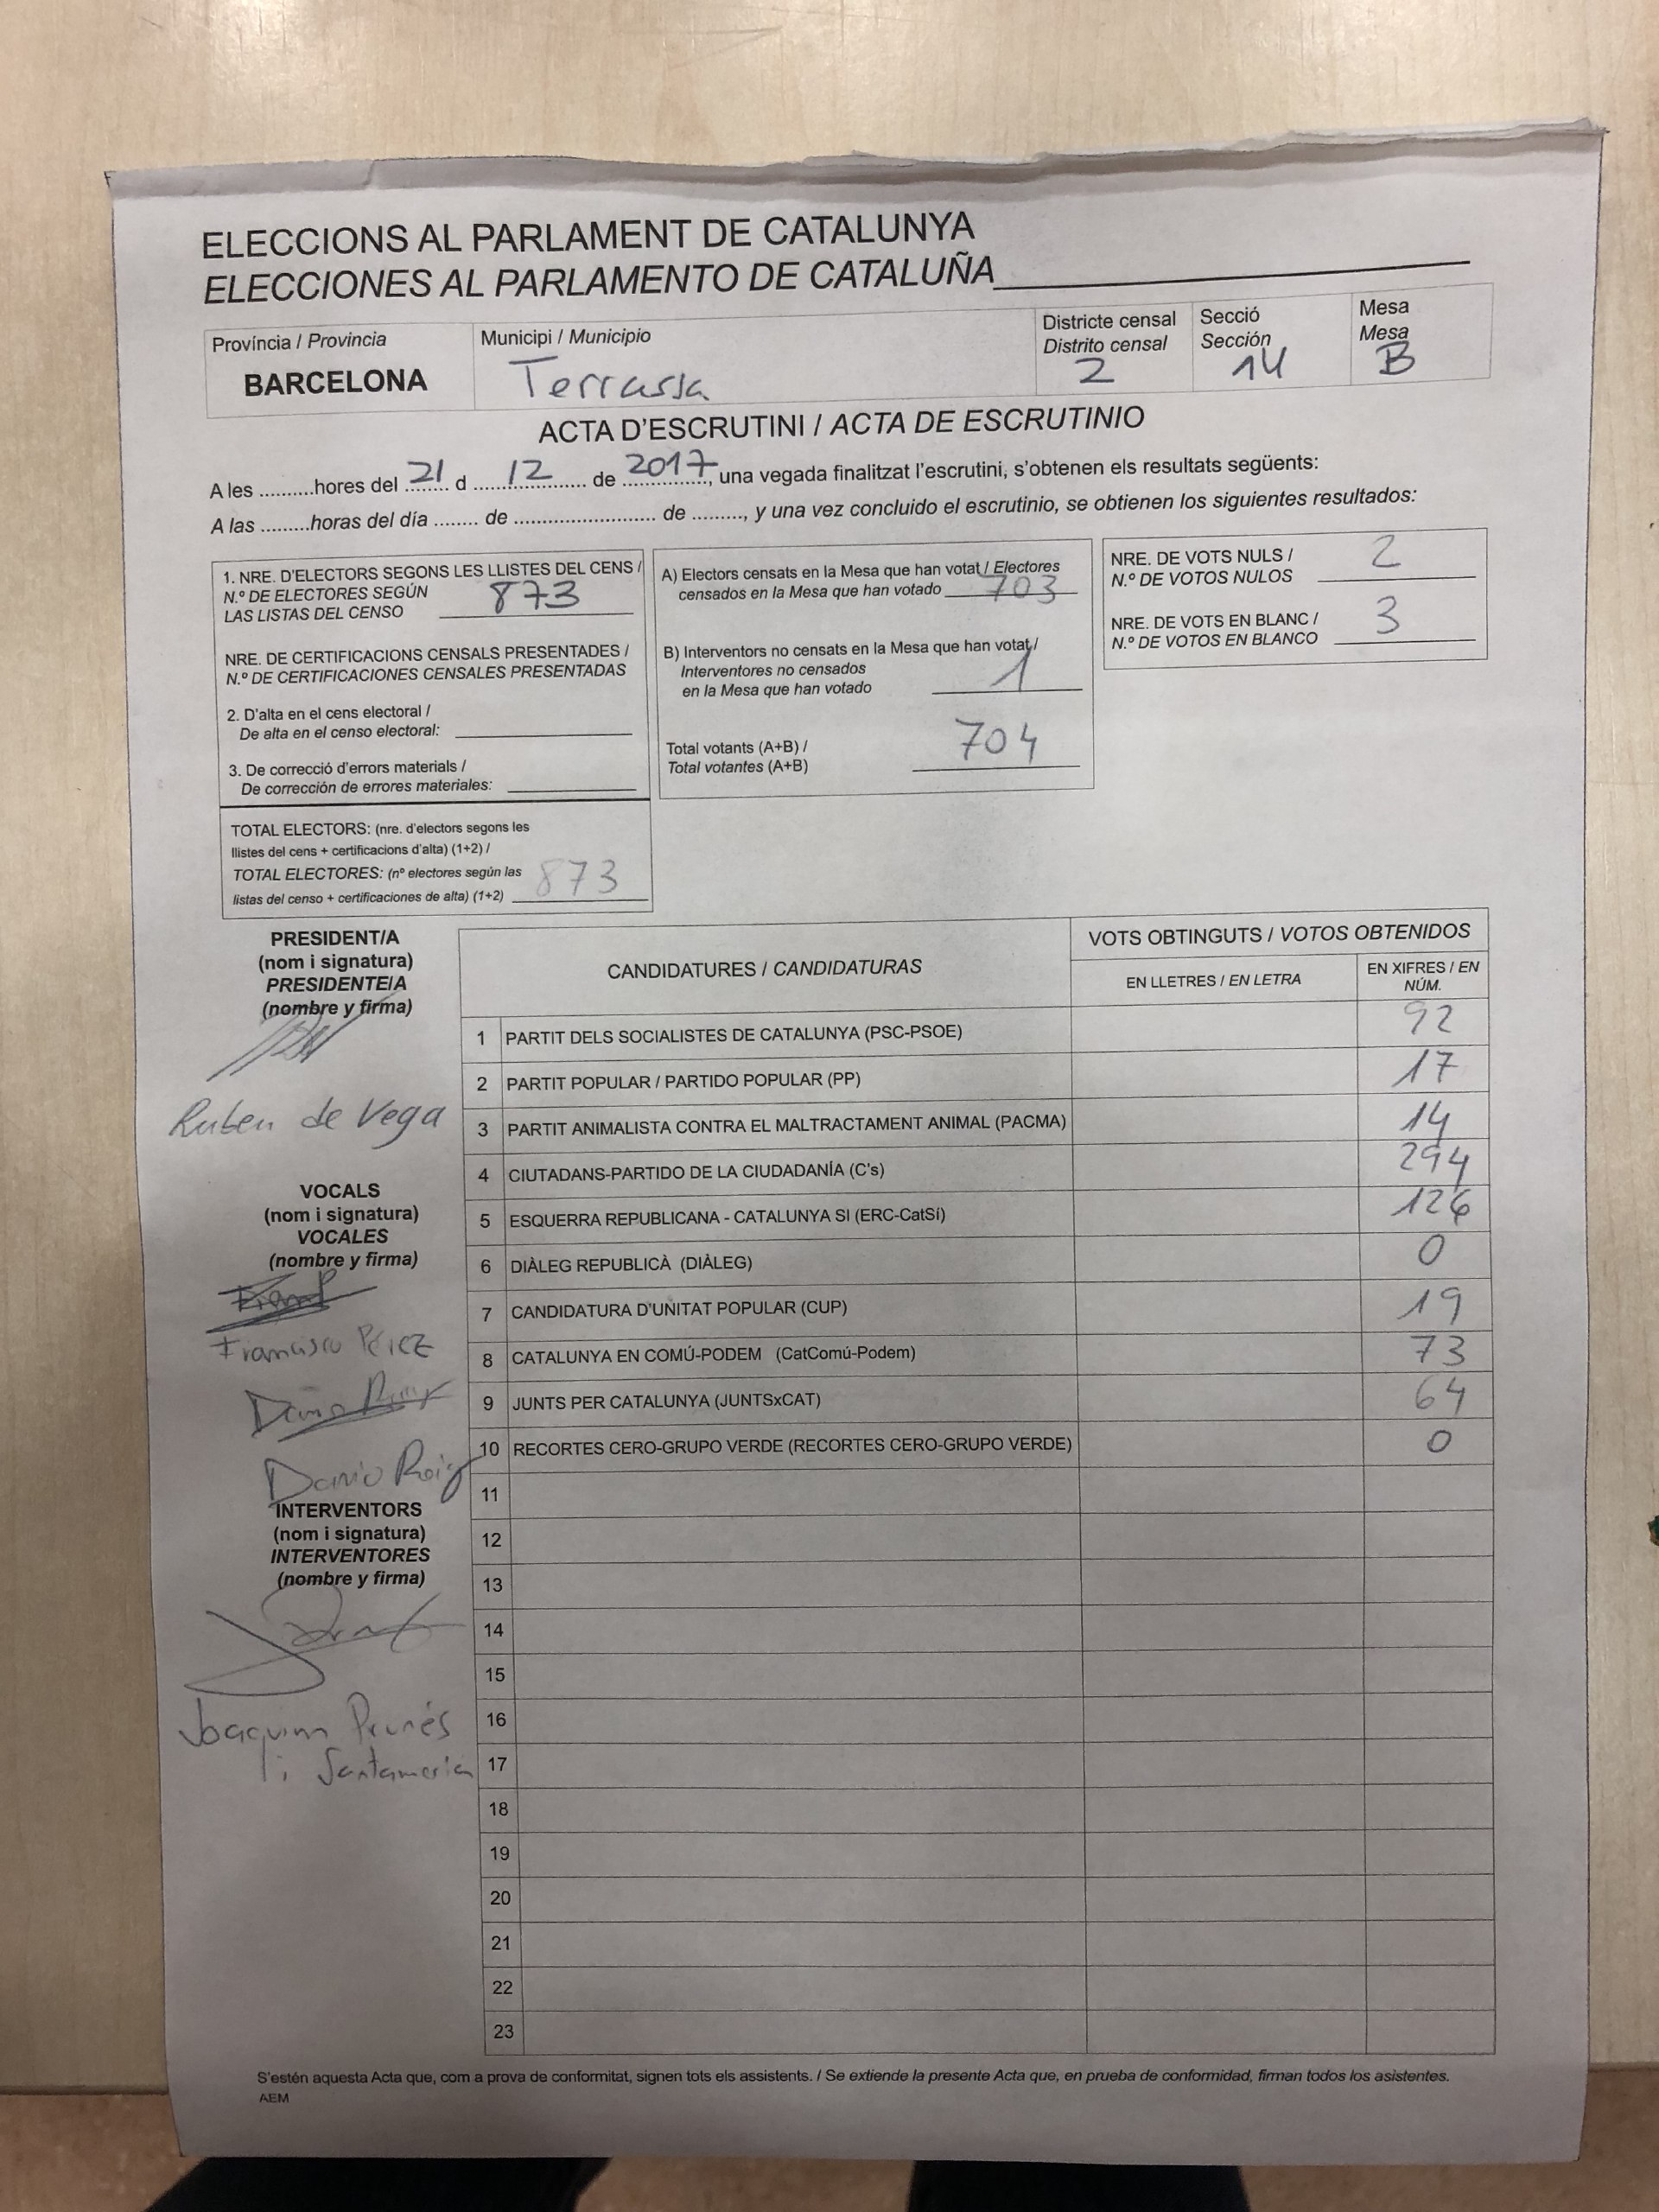 ELECCIONS AL PARLAMENT DE CATALUNYA
ELECCIONES AL PARLAMENTO DE CATALUÑA
Província / Provincia
BARCELONA
Municipi / Municipio
Terrassa
Districte censal
Distrito censal
2
Secció
Sección
14
Mesa
Mesa
B
ACTA D'ESCRUTINI / ACTA DE ESCRUTINIO
A les ..........hores del 21 d 12 de 2017, una vegada finalitzat l'escrutini, s'obtenen els resultats següents:
A las .........horas del día ........ de .......................... de ........., y una vez concluido el escrutinio, se obtienen los siguientes resultados:
1. NRE. D'ELECTORS SEGONS LES LLISTES DEL CENS /
N.º DE ELECTORES SEGÚN
LAS LISTAS DEL CENSO 873
NRE. DE CERTIFICACIONS CENSALS PRESENTADES /
N.º DE CERTIFICACIONES CENSALES PRESENTADAS
2. D'alta en el cens electoral /
De alta en el censo electoral:
3. De correcció d'errors materials /
De corrección de errores materiales:
TOTAL ELECTORS: (nre. d'electors segons les
llistes del cens + certificacions d'alta) (1+2) /
TOTAL ELECTORES: (nº electores según las
listas del censo + certificaciones de alta) (1+2) 873
A) Electors censats en la Mesa que han votat / Electores
censados en la Mesa que han votado 703
B) Interventors no censats en la Mesa que han votat /
Interventores no censados
en la Mesa que han votado 1
Total votants (A+B) /
Total votantes (A+B) 704
NRE. DE VOTS NULS /
N.º DE VOTOS NULOS 2
NRE. DE VOTS EN BLANC /
N.º DE VOTOS EN BLANCO 3
PRESIDENT/A
(nom i signatura)
PRESIDENTE/A
(nombre y firma)
Ruben de Vega
VOCALS
(nom i signatura)
VOCALES
(nombre y firma)
Francisco Pérez
Dario Roig
INTERVENTORS
(nom i signatura)
INTERVENTORES
(nombre y firma)
Joaquim Prunés
i Santameria
CANDIDATURES / CANDIDATURAS
VOTS OBTINGUTS / VOTOS OBTENIDOS
EN LLETRES / EN LETRA
EN XIFRES / EN
NÚM.
1 PARTIT DELS SOCIALISTES DE CATALUNYA (PSC-PSOE) 92
2 PARTIT POPULAR / PARTIDO POPULAR (PP) 17
3 PARTIT ANIMALISTA CONTRA EL MALTRACTAMENT ANIMAL (PACMA) 14
4 CIUTADANS-PARTIDO DE LA CIUDADANÍA (C's) 294
5 ESQUERRA REPUBLICANA - CATALUNYA SI (ERC-CatSí) 126
6 DIÀLEG REPUBLICÀ (DIÀLEG) 0
7 CANDIDATURA D'UNITAT POPULAR (CUP) 19
8 CATALUNYA EN COMÚ-PODEM (CatComú-Podem) 73
9 JUNTS PER CATALUNYA (JUNTSxCAT) 64
10 RECORTES CERO-GRUPO VERDE (RECORTES CERO-GRUPO VERDE) 0
11
12
13
14
15
16
17
18
19
20
21
22
23
S'estén aquesta Acta que, com a prova de conformitat, signen tots els assistents. / Se extiende la presente Acta que, en prueba de conformidad, firman todos los asistentes.
AEM